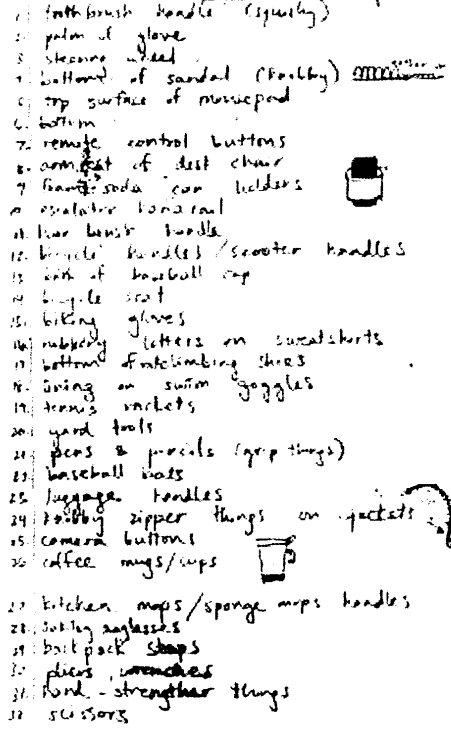 1. toothbrush handle (squishy)
2. palm of glove
3. steering wheel
4. bottom of sandal (knobby)
5. top surface of mousepad
6. bottom
7. remote control buttons
8. armrest of desk chair
9. foam soda can holders
10. escalator handrail
11. hair brush handle
12. bicycle handles/scooter handles
13. of baseball cap
14. bicycle seat
15. biking gloves
16. rubbery letters on sweatshirts
17. bottom of rockclimbing shoes
18. lining on swim goggles
19. tennis rackets
20. yard tools
21. pens & pencils (grip things)
22. baseball bats
23. luggage handles
24. knobby zipper things on jackets
25. camera buttons
26. coffee mugs/cups
27. kitchen mops/sponge mops handles
28.
29. backpack straps
30. pliers, wrenches
31. hand-strengther things
32. scissors